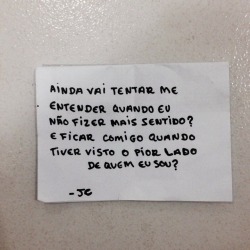 AINDA VAI TENTAR ME
ENTENDER QUANDO EU
NÃO FIZER MAIS SENTIDO?
E FICAR COMIGO QUANDO
TIVER VISTO O PIOR LADO
DE QUEM EU SOU?
-JC